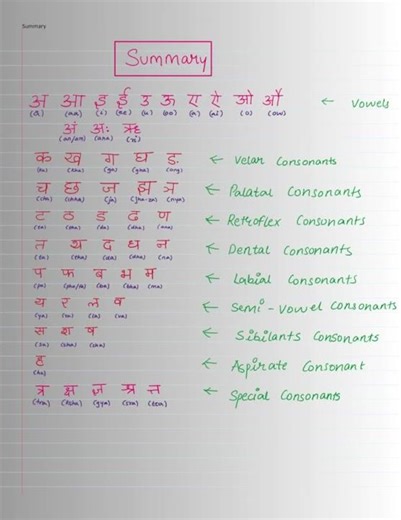 Summary
Summary
अ आ इ ई उ ऊ ए ऐ ओ औ ← Vowels
(a) (aa) (i) (ee) (u) (oo) (e) (ai) (o) (ow)
अं अः ऋ
(an/am) (aha) (ri)
क ख ग घ ङ ← Velar Consonants
(ka) (kha) (ga) (gha) (ang)
च छ ज झ ञ ← Palatal Consonants
(cha) (chha) (ja) (nya)
ट ठ ड ढ ण ← Retroflex Consonants
(ta) (tha) (da) (dha) (ana)
त थ द ध न ← Dental Consonants
(ta) (tha) (da) (dha) (na)
प फ ब भ म ← Labial Consonants
(pa) (pha/fa) (ba) (bha) (ma)
य र ल व ← Semi-Vowel Consonants
(ya) (ra) (la) (va)
स श ष ← Sibilants Consonants
(sa) (sha) (sha)
ह ← Aspirate Consonant
(ha)
त्र क्ष ज्ञ श्र त्त ← Special Consonants
(tra) (ksha) (gya) (sra)